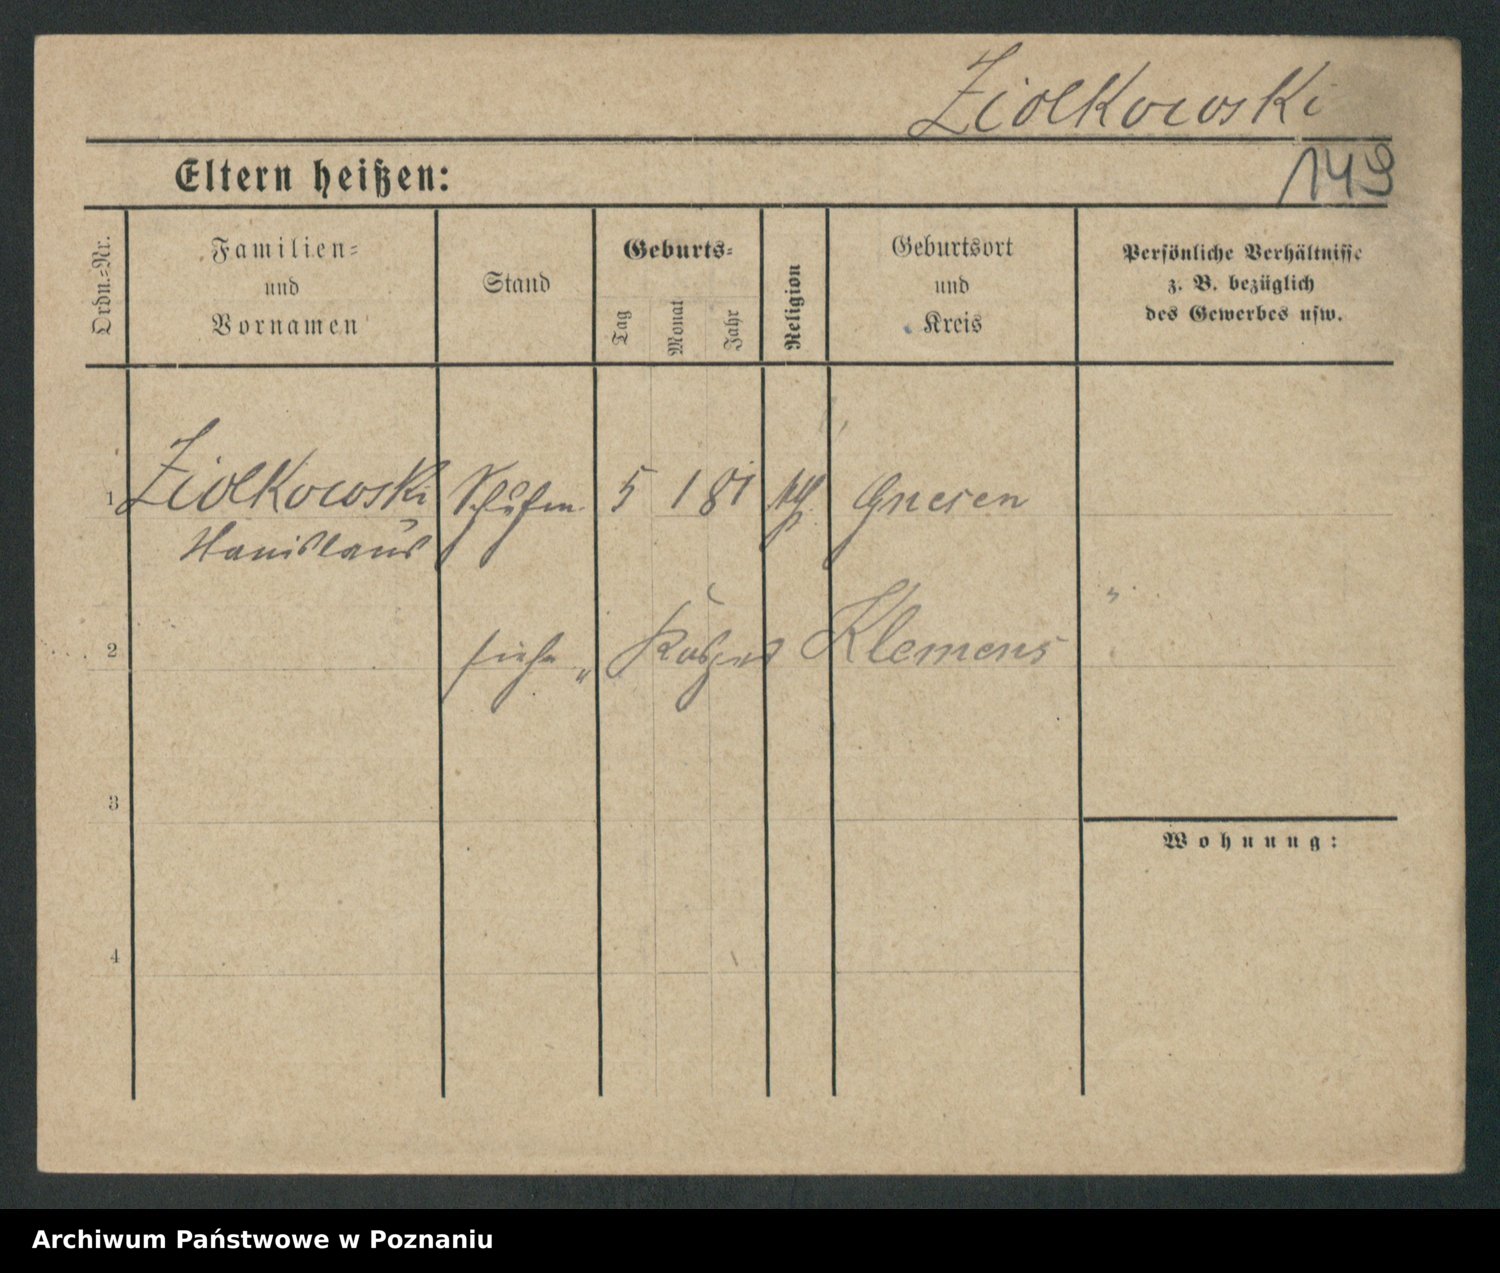 Ziolkowski
Eltern heißen:
149
Ordn.-Nr.
Familien-
und
Vornamen
Stand
Geburts-
Tag
Monat
Jahr
Religion
Geburtsort
und
Kreis
Persönliche Verhältnisse
z. B. bezüglich
des Gewerbes usw.
1 Ziolkowski 5 1 81 kth. Gnesen
Stanislaus
2 siehe " Klemens
3
Wohnung:
4
Archiwum Państwowe w Poznaniu